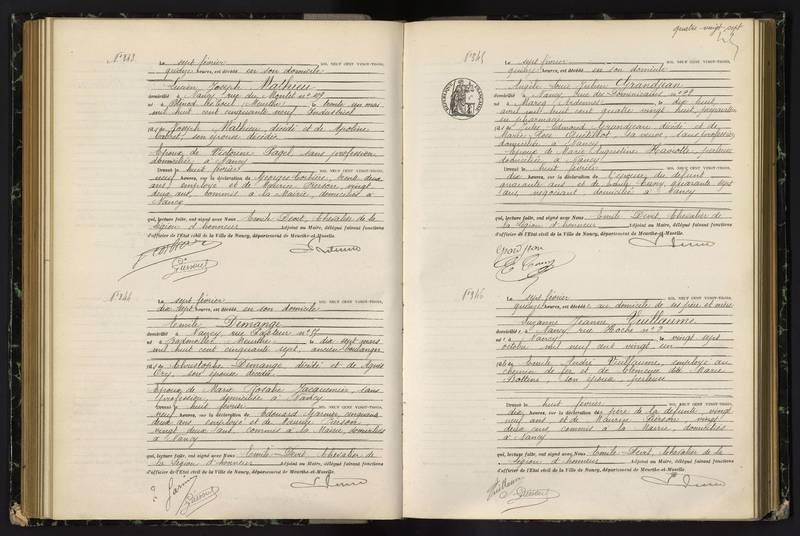 N° 343
Le sept février MIL NEUF CENT VINGT-TROIS,
quinze heures, est décédé en son domicile
Lucien Joseph Mathieu
domicilié à Nancy, rue du Montet n° 109
né à (Meurthe) le trente un mars
mil huit cent cinquante neuf, Industriel
fils de Joseph Mathieu décédé et de
son épouse décédée
Epoux de Victorine Pagel sans profession
domiciliée à Nancy
Dressé le huit février MIL NEUF CENT VINGT-TROIS,
neuf heures, sur la déclaration de Georges trente deux
ans, employé et de Maurice Pierson, vingt
deux ans, commis à la Mairie, domiciliés à
Nancy
qui, lecture faite, ont signé avec Nous Emile Devit, Chevalier de la
Légion d'honneur Adjoint au Maire, délégué faisant fonctions
d'officier de l'Etat civil de la Ville de Nancy, département de Meurthe-et-Moselle.
N° 344
Le sept février MIL NEUF CENT VINGT-TROIS,
dix sept heures, est décédé en son domicile
Demange
domicilié à Nancy rue Pasteur n°
né à (Meurthe) le dix sept mars
mil huit cent cinquante sept, ancien boulanger
fils de Christophe Demange décédé et de Agnès
son épouse décédée
Epoux de Marie Rosalie Jacquemin sans
profession, domiciliée à Nancy
Dressé le huit février MIL NEUF CENT VINGT-TROIS,
neuf heures, sur la déclaration de Edouard Garnier, cinquante
deux ans employé et de Maurice Pierson
vingt deux ans, commis à la Mairie, domiciliés
à Nancy
qui, lecture faite, ont signé avec Nous Emile Devit, Chevalier de
la Légion d'honneur Adjoint au Maire, délégué faisant fonctions
d'officier de l'Etat civil de la Ville de Nancy, département de Meurthe-et-Moselle.
quatre-vingt-sept
N° 345
Le sept février MIL NEUF CENT VINGT-TROIS,
quinze heures, est décédé en son domicile
Louis Julien Grandjean
domicilié à Nancy, rue des n° 28
né à (Ardennes) le dix huit
avril mil huit cent quatre vingt huit, préparateur
en pharmacie
fils de Jules Edmond Grandjean décédé et de
Marie Rose sa veuve, sans profession
domiciliée à Nancy
Epoux de Marie Augustine
domiciliée à Nancy
Dressé le huit février MIL NEUF CENT VINGT-TROIS,
dix heures, sur la déclaration de l'épouse du défunt
quarante ans et de quarante sept
ans, négociant domiciliés à Nancy
qui, lecture faite, ont signé avec Nous Emile Devit, Chevalier de
la Légion d'honneur Adjoint au Maire, délégué faisant fonctions
d'officier de l'Etat civil de la Ville de Nancy, département de Meurthe-et-Moselle.
N° 346
Le sept février MIL NEUF CENT VINGT-TROIS,
quinze heures, est décédée au domicile de ses père et mère
Suzanne Jeanne Vuillaume
domiciliée à Nancy rue Hoche n° 2
née à Nancy le vingt sept
octobre mil neuf cent vingt un
fille de Emile André Vuillaume, employé au
chemin de fer et de Clémence Marie
son épouse,
Dressé le huit février MIL NEUF CENT VINGT-TROIS,
dix heures, sur la déclaration du père de la défunte, vingt
neuf ans, et de Maurice Pierson, vingt
deux ans commis à la Mairie, domiciliés
à Nancy
qui, lecture faite, ont signé avec Nous Emile Devit, Chevalier de la
Légion d'honneur Adjoint au Maire, délégué faisant fonctions
d'officier de l'Etat civil de la Ville de Nancy, département de Meurthe-et-Moselle.